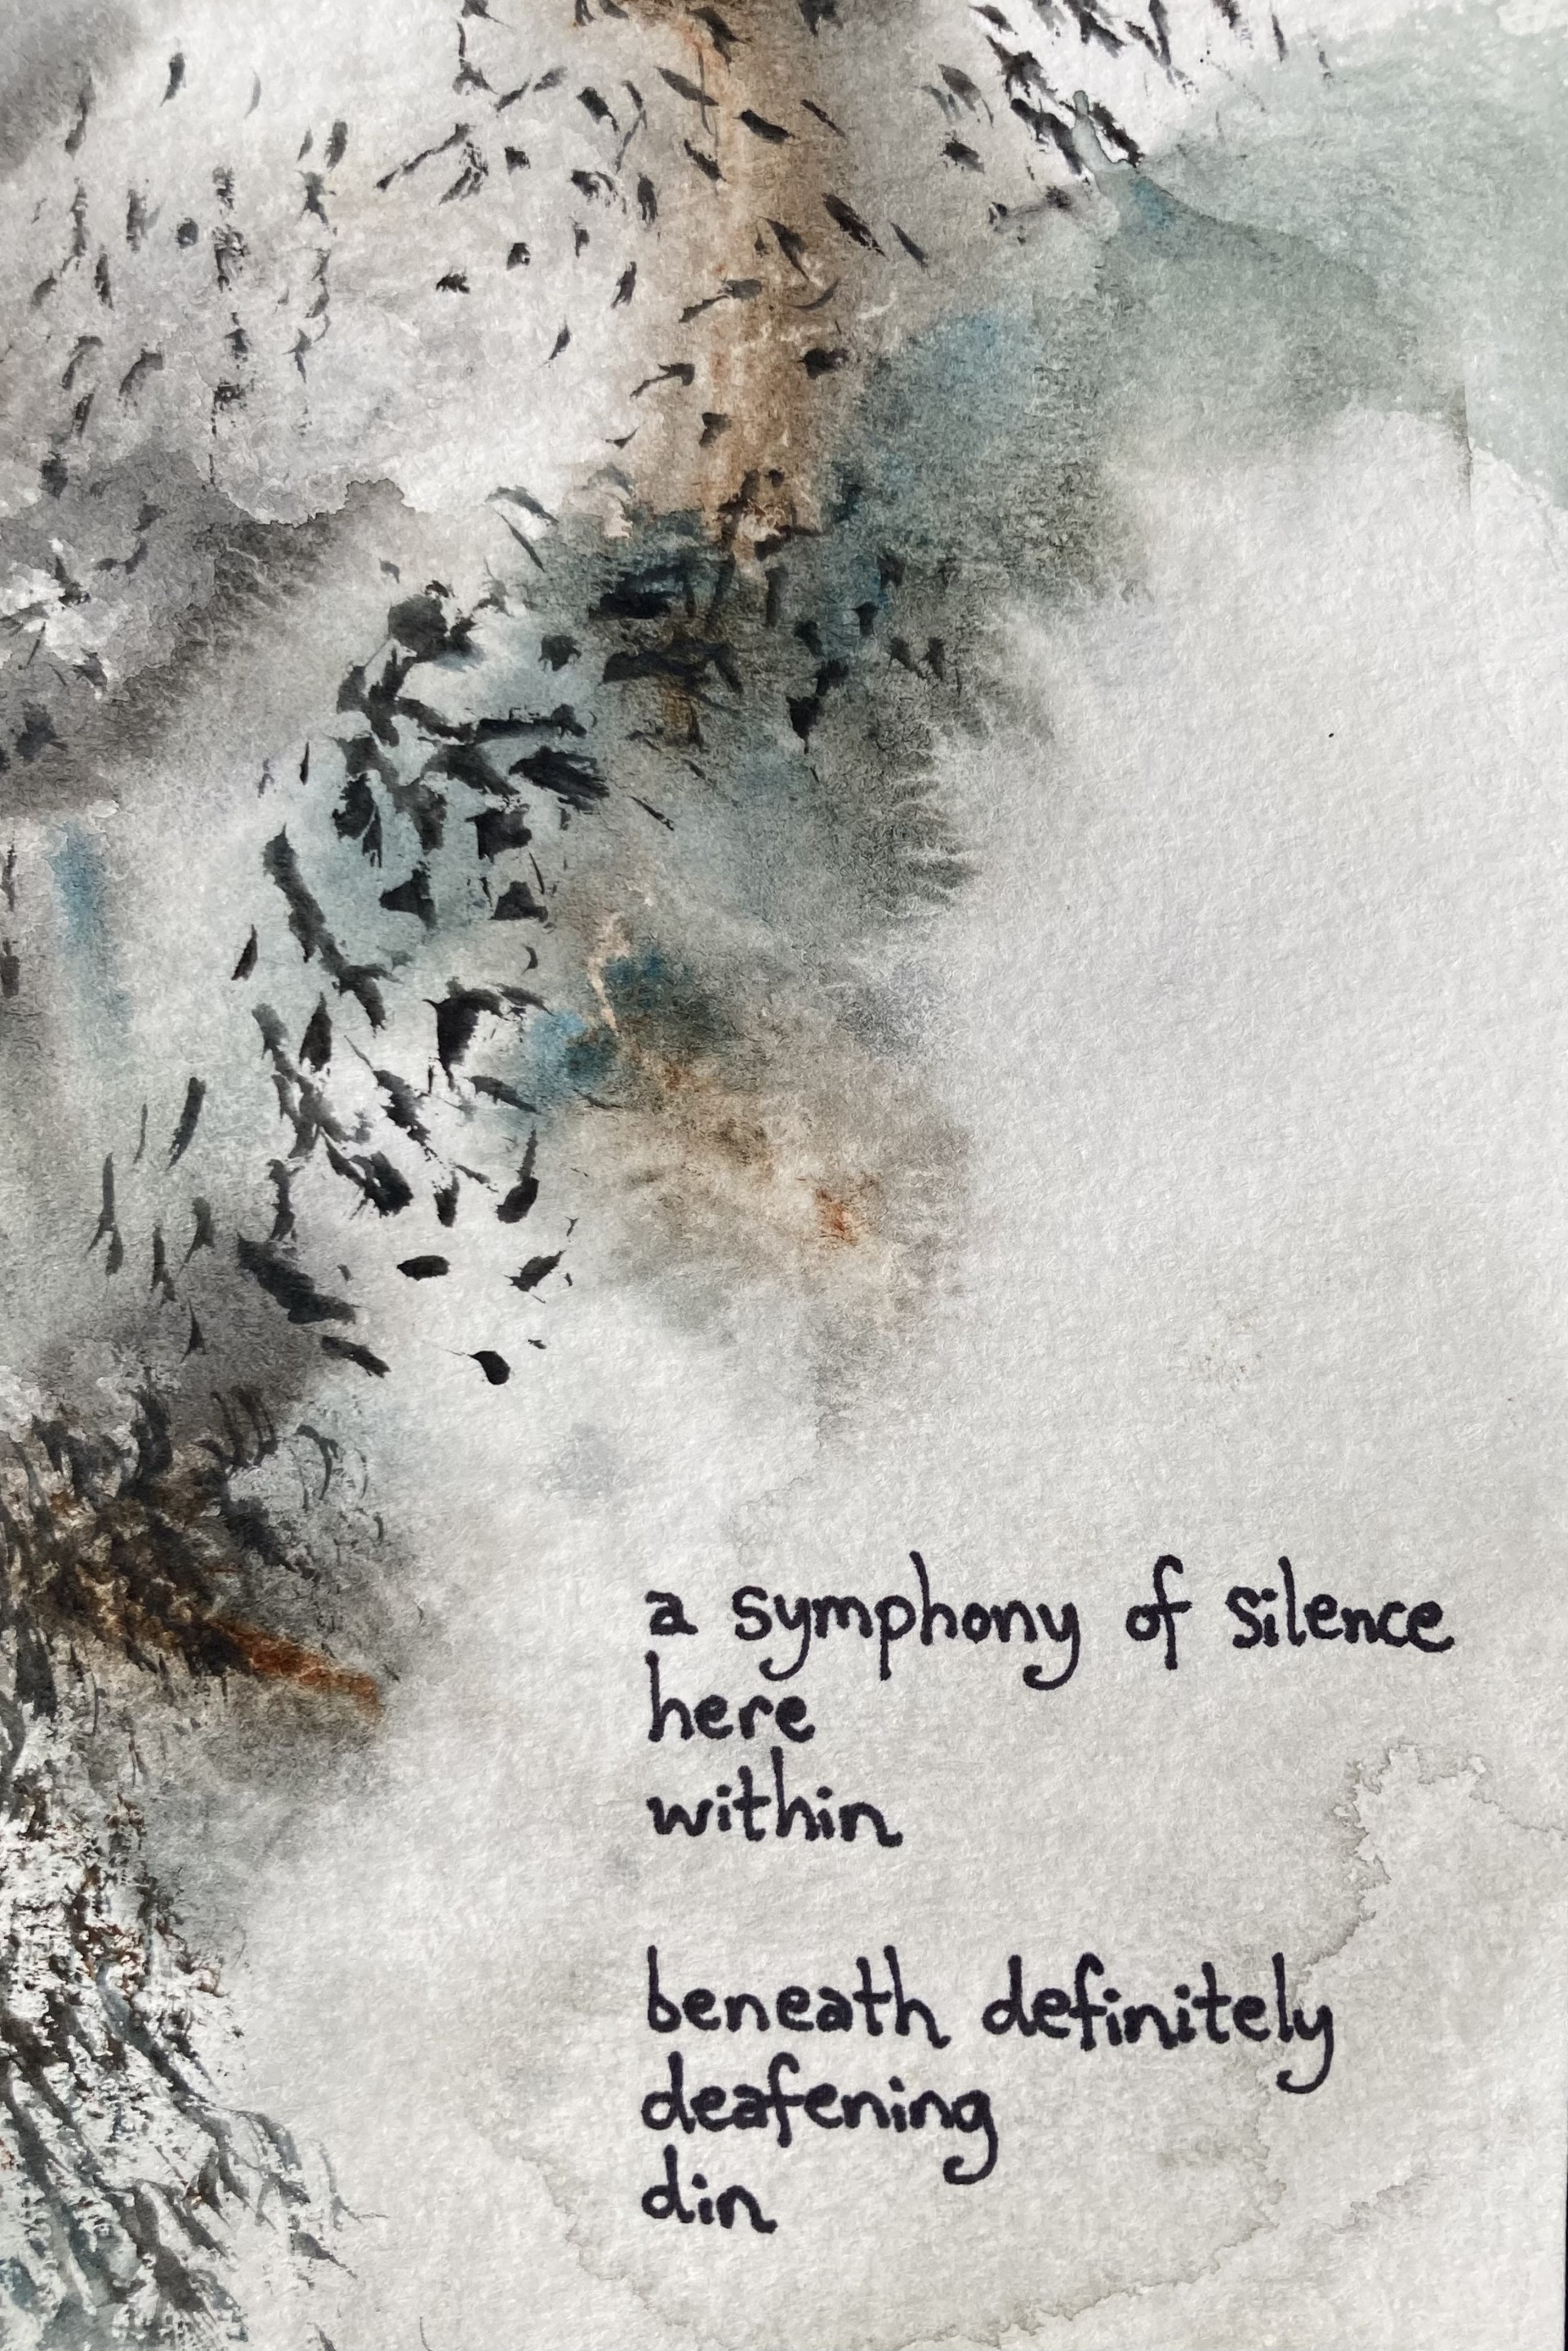 a symphony of silence
here
within
beneath definitely
deafening
din